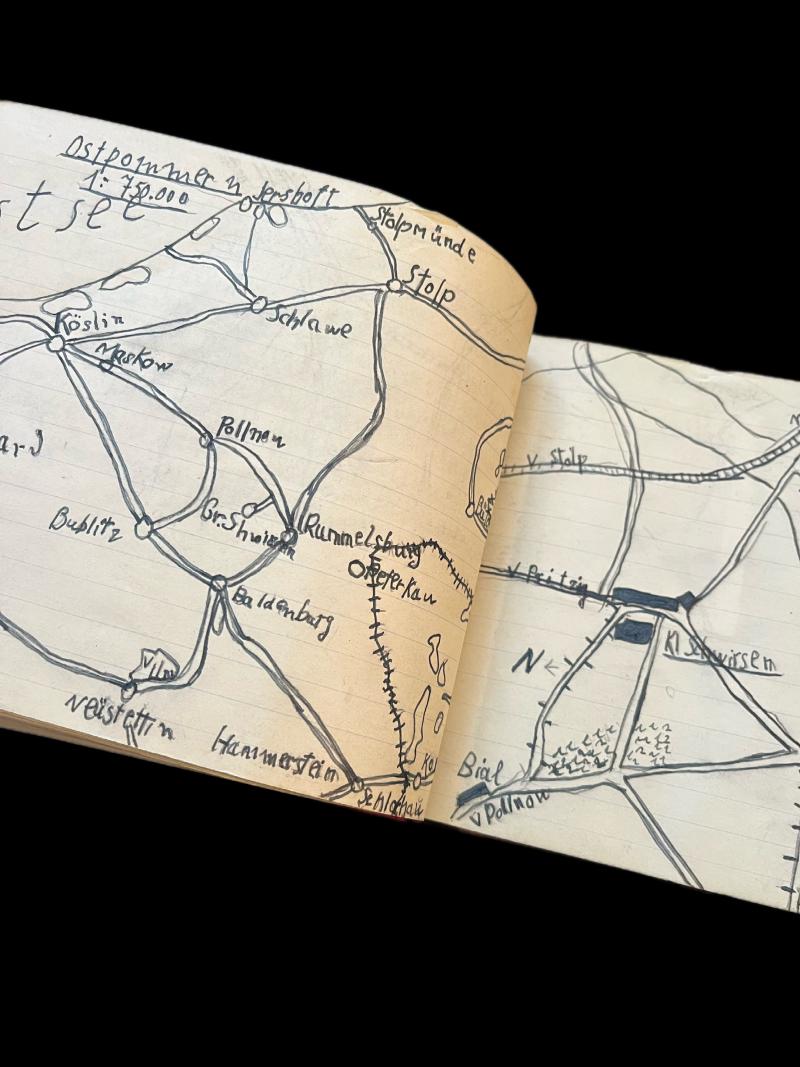 Ostpommern
1:750.000
stsee
Jershöft
Stolpmünde
Stolp
Schlawe
Köslin
Maskow
Pollnow
ard
Bublitz
Gr. Shwirsen
Rummelsburg
Peterkau
Baldenburg
Vilm
Neustettin
Hammerstein
Schlochau
v. Stolp
v Pritzig
Kl Schwirsen
N
Bial
v Pollnow